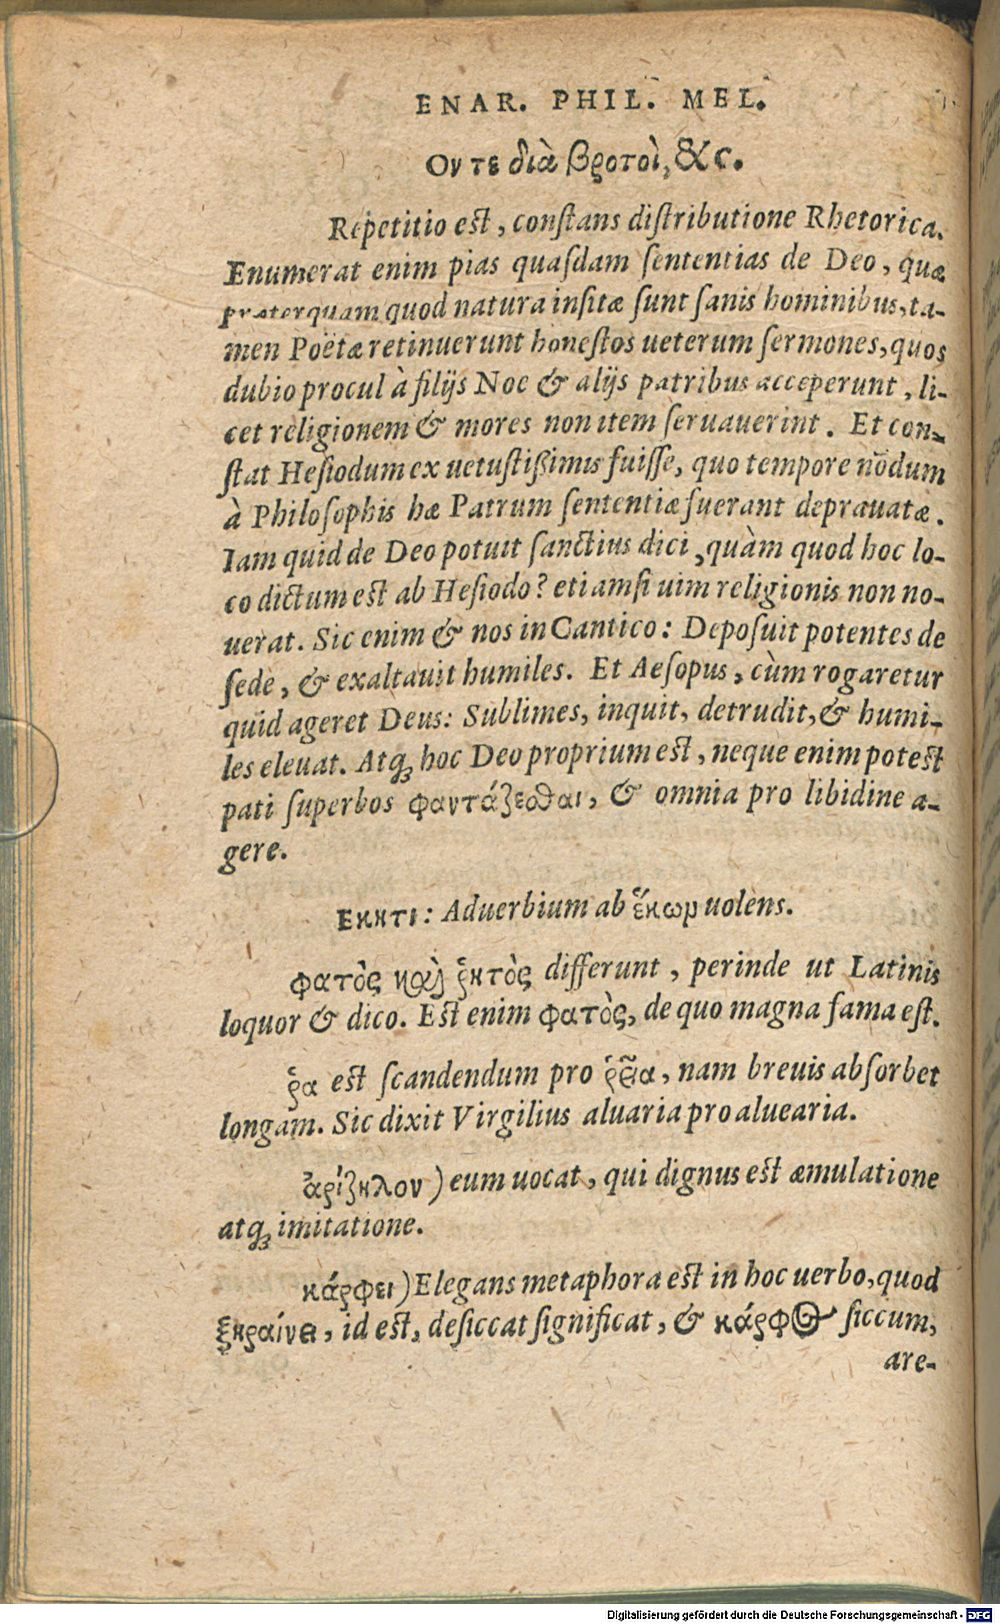 ENAR. PHIL. MEL.
Ον τε διὰ βροτοὶ, &c.
Repetitio eſt, conſtans diſtributione Rhetorica.
Enumerat enim pias quaſdam ſententias de Deo, quæ
præterquam quod natura inſitæ ſunt ſanis hominibus, ta-
men Poëtæ retinuerunt honeſtos ueterum ſermones, quos
dubio procul à filijs Noe & alijs patribus acceperunt, li-
cet religionem & mores non item ſeruauerint. Et con-
ſtat Heſiodum ex uetuſtißimis fuiſſe, quo tempore nōdum
à Philoſophis hæ Patrum ſententiæ fuerant deprauatæ.
Iam quid de Deo potuit ſanctius dici, quàm quod hoc lo-
co dictum eſt ab Heſiodo? etiamſi uim religionis non no-
uerat. Sic enim & nos in Cantico: Depoſuit potentes de
ſede, & exaltauit humiles. Et Aeſopus, cùm rogaretur
quid ageret Deus: Sublimes, inquit, detrudit, & humi-
les eleuat. Atq; hoc Deo proprium eſt, neque enim poteſt
pati ſuperbos φαντάζεσθαι, & omnia pro libidine a-
gere.
Εκητι: Aduerbium ab ἕκωμ uolens.
φατὸς καὶ ῥητὸς differunt, perinde ut Latinis
loquor & dico. Eſt enim φατὸς, de quo magna fama eſt.
ῥα eſt ſcandendum pro ῥῶα, nam breuis abſorbet
longam. Sic dixit Virgilius aluaria pro aluearia.
ἀρίζηλον) eum uocat, qui dignus eſt æmulatione
atq; imitatione.
κάρφει) Elegans metaphora eſt in hoc uerbo, quod
ξηραίνει, id eſt, deſiccat ſignificat, & κάρφος ſiccum,
are-
Digitalisierung gefördert durch die Deutsche Forschungsgemeinschaft - DFG